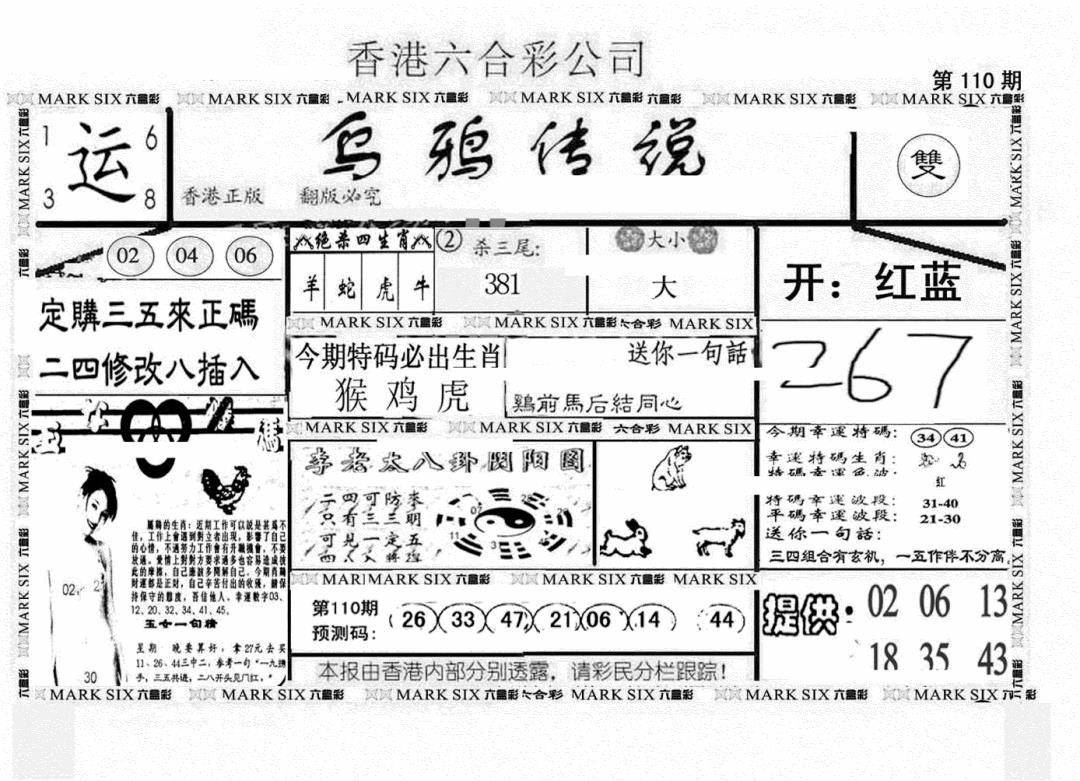 香港六合彩公司
第110期
MARK SIX 六合彩 MARK SIX 六合彩 MARK SIX 六合彩 MARK SIX 六合彩 六合彩 MARK SIX 六合彩 MARK SIX 六合彩
1 6
运
3 8
乌鸦传说
香港正版 翻版必究
雙
02 04 06
定購三五來正碼
二四修改八插入
绝杀四生肖
羊 蛇 虎 牛
② 杀三尾:
381
大小
大
开：红蓝
MARK SIX 六合彩 MARK SIX 六合彩 六合彩 MARK SIX
今期特码必出生肖
猴 鸡 虎
送你一句話
鷄前馬后結同心
267
MARK SIX 六合彩 MARK SIX 六合彩 六合彩 MARK SIX
李老太八卦阴阳圖
二四可防來
只有三三期
可見一定五
今期幸運特碼: 34 41
幸運特碼生肖:
红
特碼幸運波段: 31-40
平碼幸運波段: 21-30
送你一句話:
三四組合有玄机，一五作伴不分离
屬鷄的生肖：近期工作可以說是甚爲不
佳，工作上會遇到對立者出現，影響了自己
的心情，不過努力工作會有升職機會，不要
放過。愛情上對對方要求過多也容易造成彼
此的摩擦，自己應該多關解自己，今期肖鷄
財運都是正財，自己辛苦付出的收獲，請保
持保守的態度，吾信他人。幸運數字03、
12、20、32、34、41、45。
五女一句精
星期 晚要算好，拿27元去买
11、26、44三中二，参考一句“一九携
手，三五共进，二八开头见门红，”
02 2
30
MARK SIX 六合彩 MARK SIX 六合彩 MARK SIX
第110期
预测码:
26 33 47 21 06 14 44
本报由香港内部分别透露，请彩民分栏跟踪!
提供:
02 06 13
18 35 43
MARK SIX 六合彩 MARK SIX 六合彩 MARK SIX 六合彩 六合彩 MARK SIX 六合彩 MARK SIX 六合彩 MARK SIX 六合彩